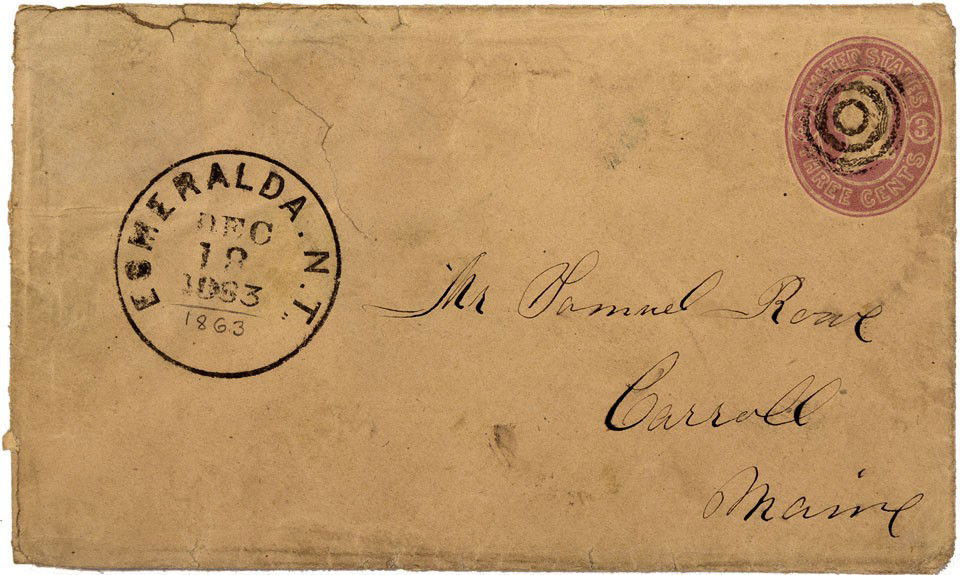 UNITED STATES
3
THREE CENTS
ESMERALDA. N.T.
DEC
18
1863
1863
Mr Samuel Rowe
Carroll
Maine